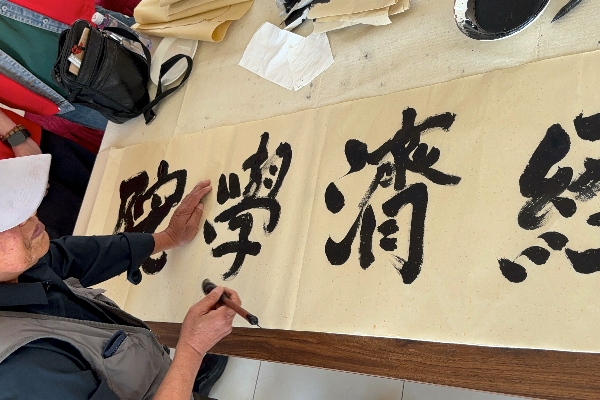 經濟學院